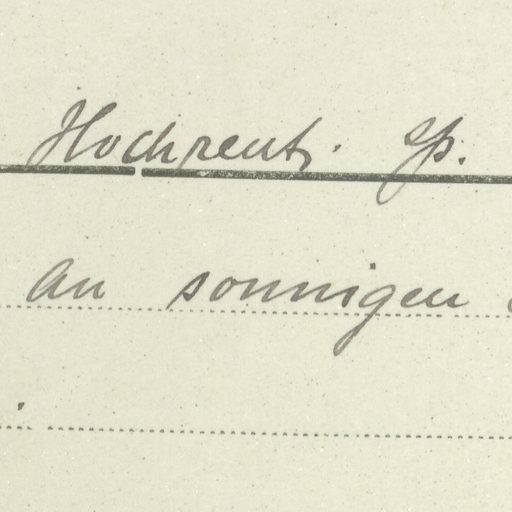 Hochreut.
An sonnigen